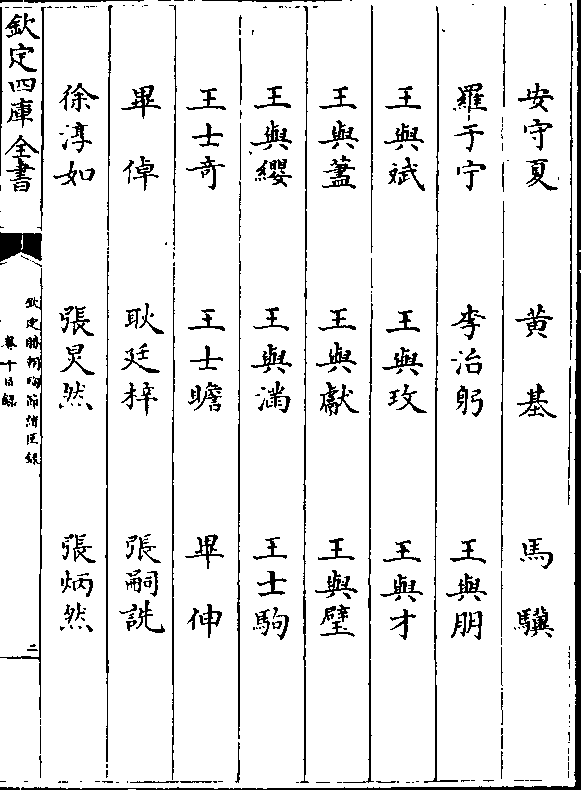 安守夏　黄基　馬驥
羅于宁　李治躬　王與朋
王與斌　王與玫　王與才
王與藎　王與獻　王與璧
王與纓　王與滿　王士駒
王士奇　王士瞻　畢伸
畢倬　耿廷梓　張嗣詵
徐淳如　張炅然　張炳然
欽定四庫全書
欽定勝朝殉節諸臣錄
卷十目錄
二